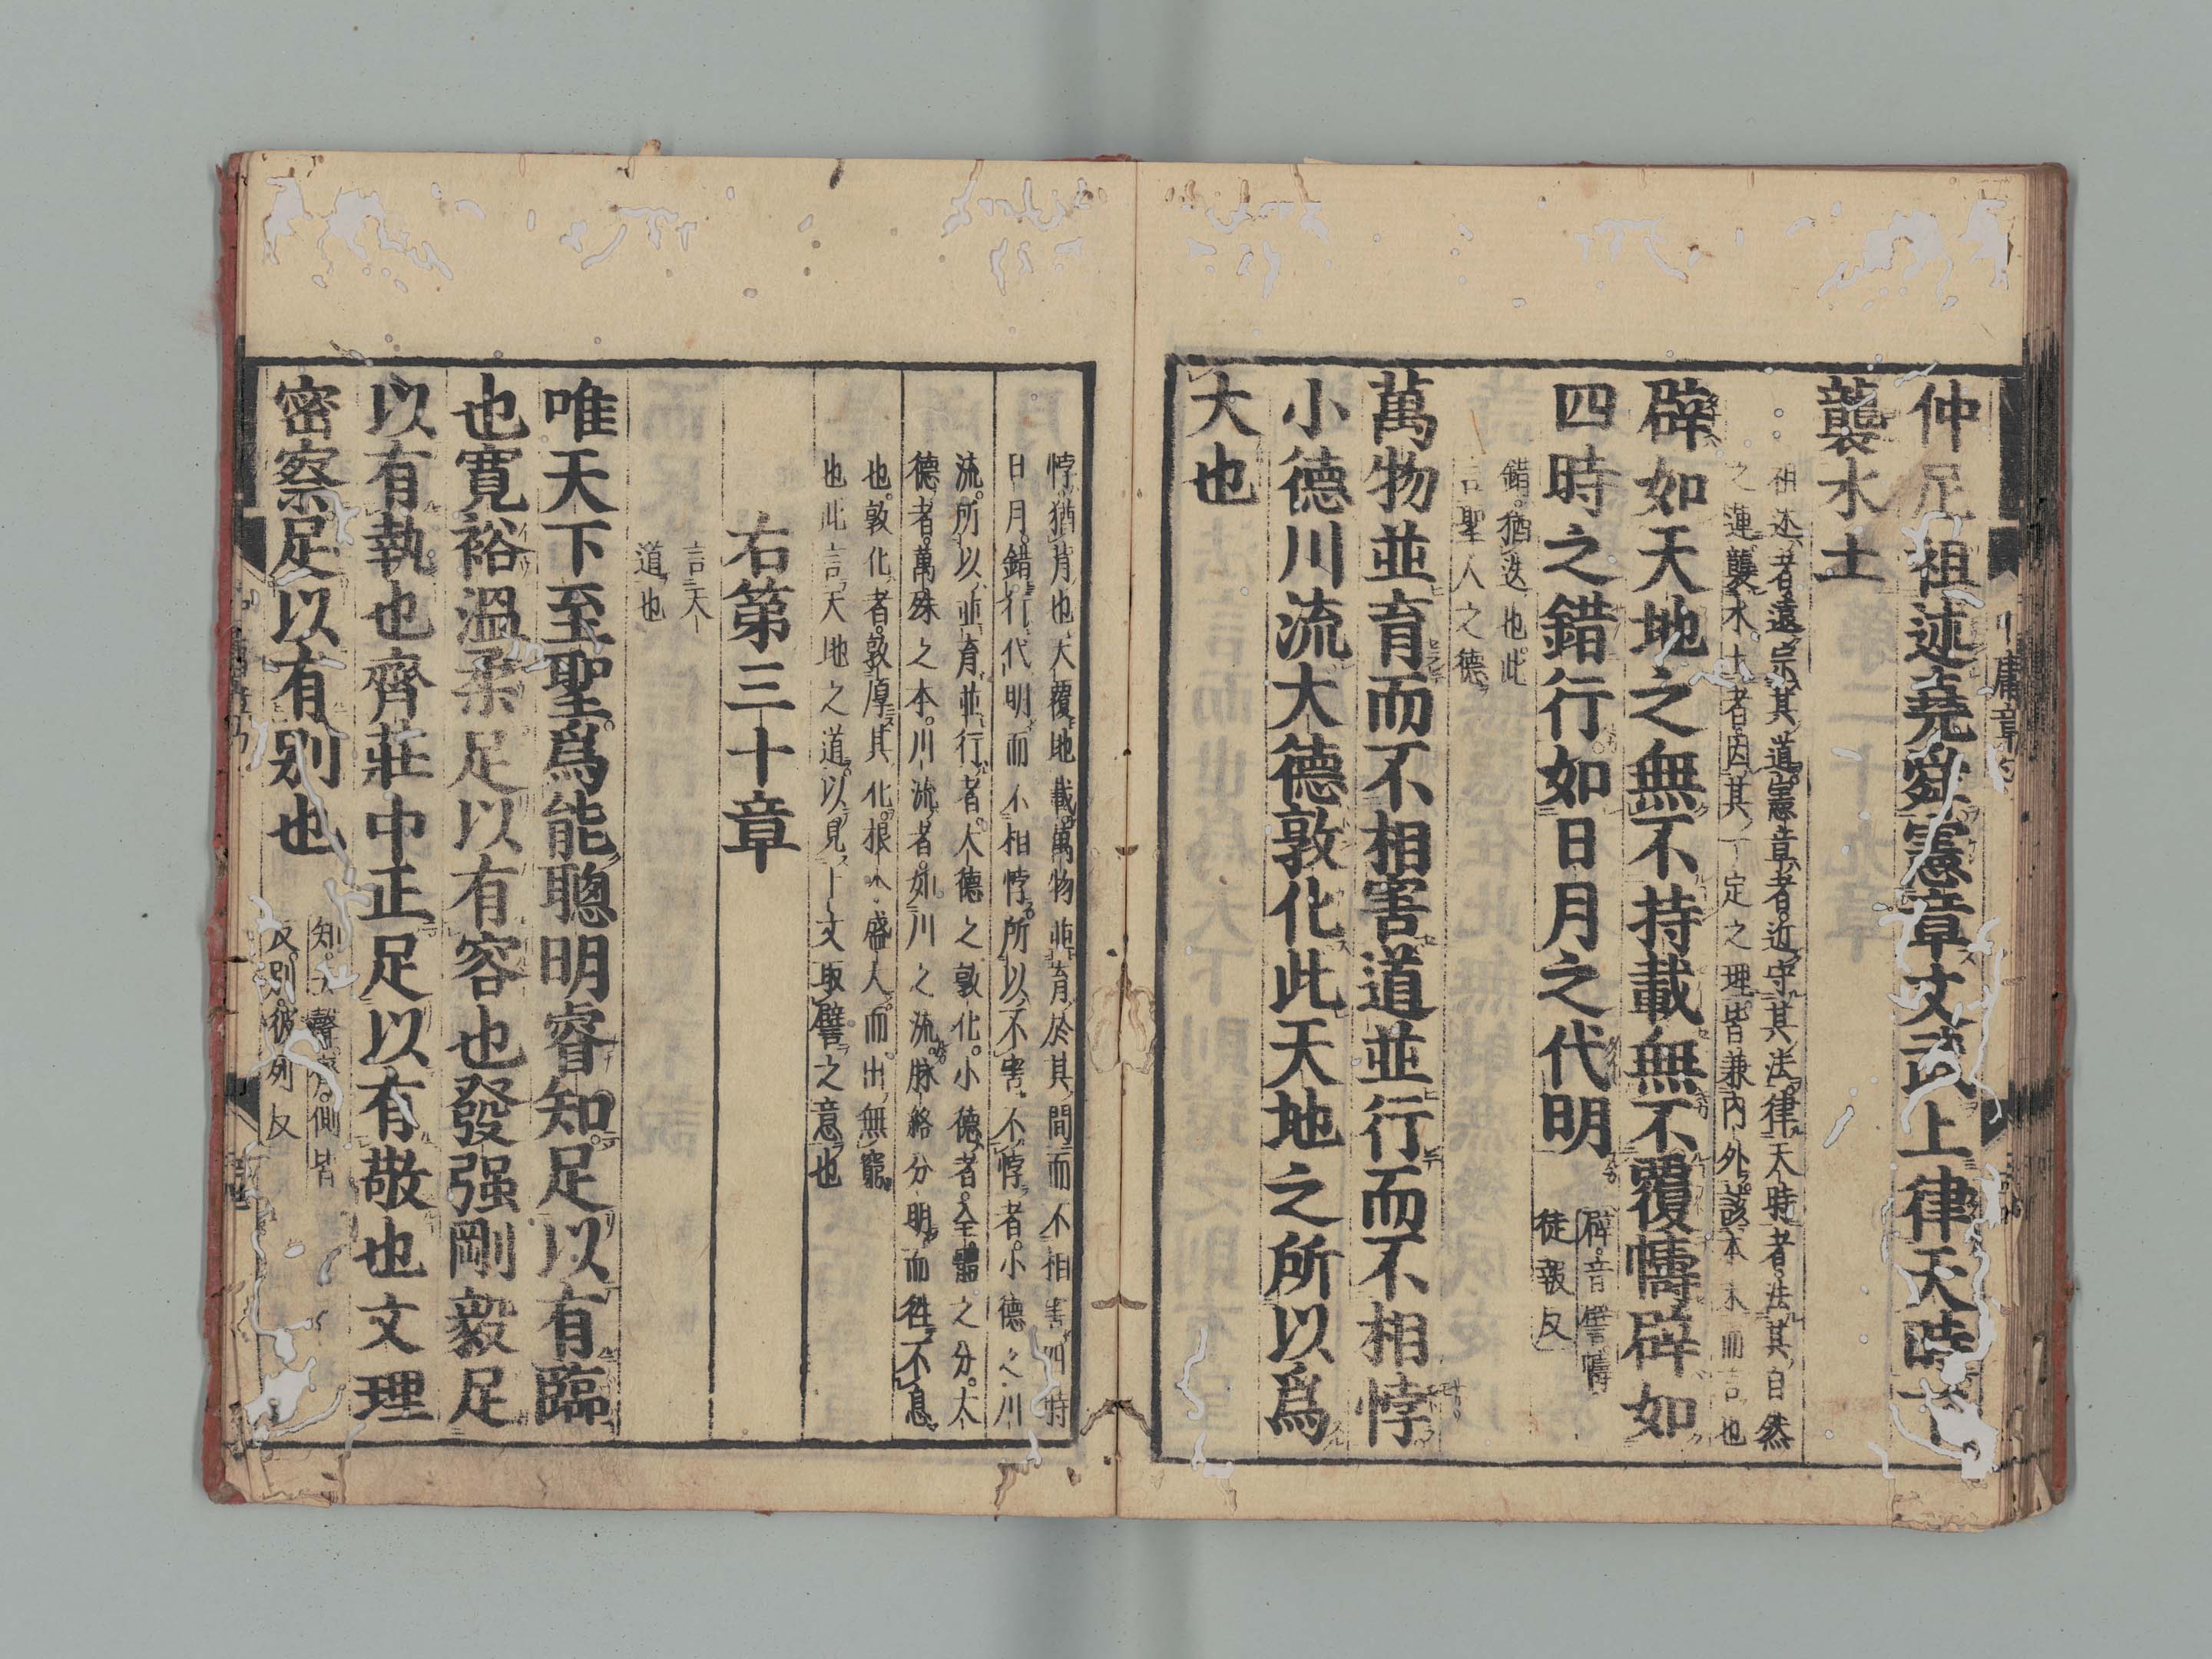 中庸章句
仲尼祖述堯舜憲章文武上律天時下
襲水土
祖述者遠宗其道憲章者近守其法律天時者法其自然
之運襲水土者因其一定之理皆兼内外該本末而言也
辟如天地之無不持載無不覆幬辟如
四時之錯行如日月之代明
辟音譬幬
徒報反
錯猶迭也此
言聖人之德
萬物並育而不相害道並行而不相悖
小德川流大德敦化此天地之所以爲
大也
悖猶背也天覆地載萬物並育於其間而不相害四時
日月錯行代明而不相悖所以不害不悖者小德之川
流所以並育並行者大德之敦化小德者全體之分大
德者萬殊之本川流者如川之流脉絡分明而徃不息
也敦化者敦厚其化根本盛大而出無窮
也此言天地之道以見上文取譬之意也
右第三十章
言天
道也
唯天下至聖爲能聰明睿知足以有臨
也寛裕溫柔足以有容也發强剛毅足
以有執也齊莊中正足以有敬也文理
密察足以有别也
知去聲齊側皆
反別彼列反